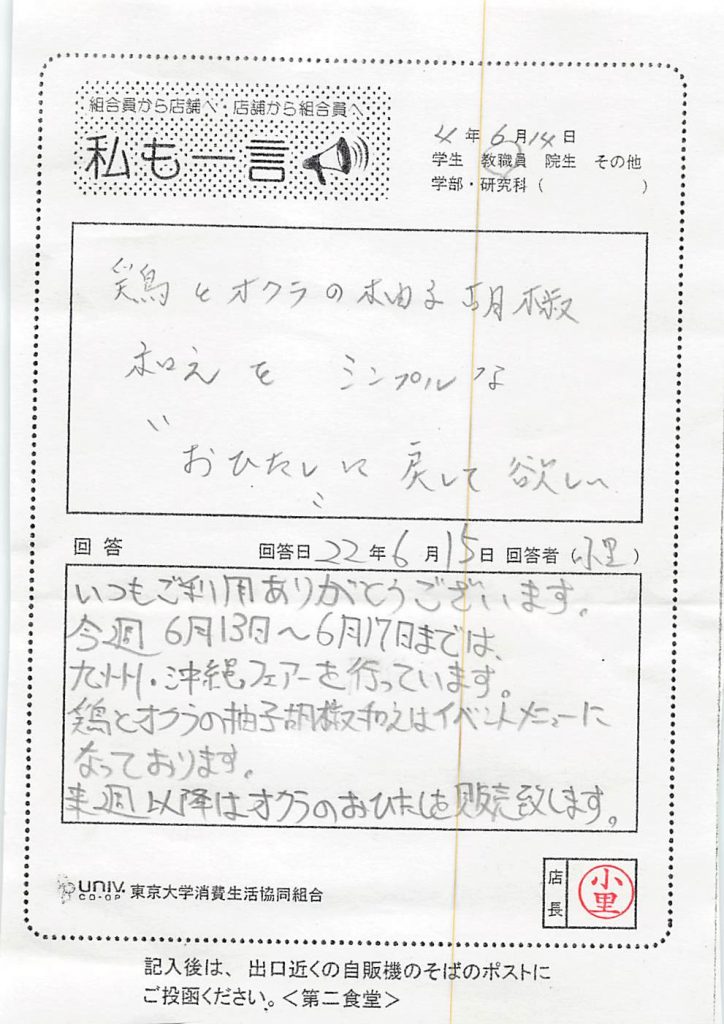 組合員から店舗へ 店舗から組合員へ
私も一言
4年6月14日
学生 教職員 院生 その他
学部・研究科( )
鶏とオクラの柚子胡椒
和えを シンプルな
"おひたし"に戻して欲しい
回答 回答日22年6月15日 回答者(小里)
いつもご利用ありがとうございます。
今週6月13日～6月17日までは、
九州・沖縄フェアーを行っています。
鶏とオクラの柚子胡椒和えはイベントメニューに
なっております。
来週以降はオクラのおひたしを販売致します。
UNIV. CO-OP 東京大学消費生活協同組合
店長 小里
記入後は、出口近くの自販機のそばのポストに
ご投函ください。<第二食堂>